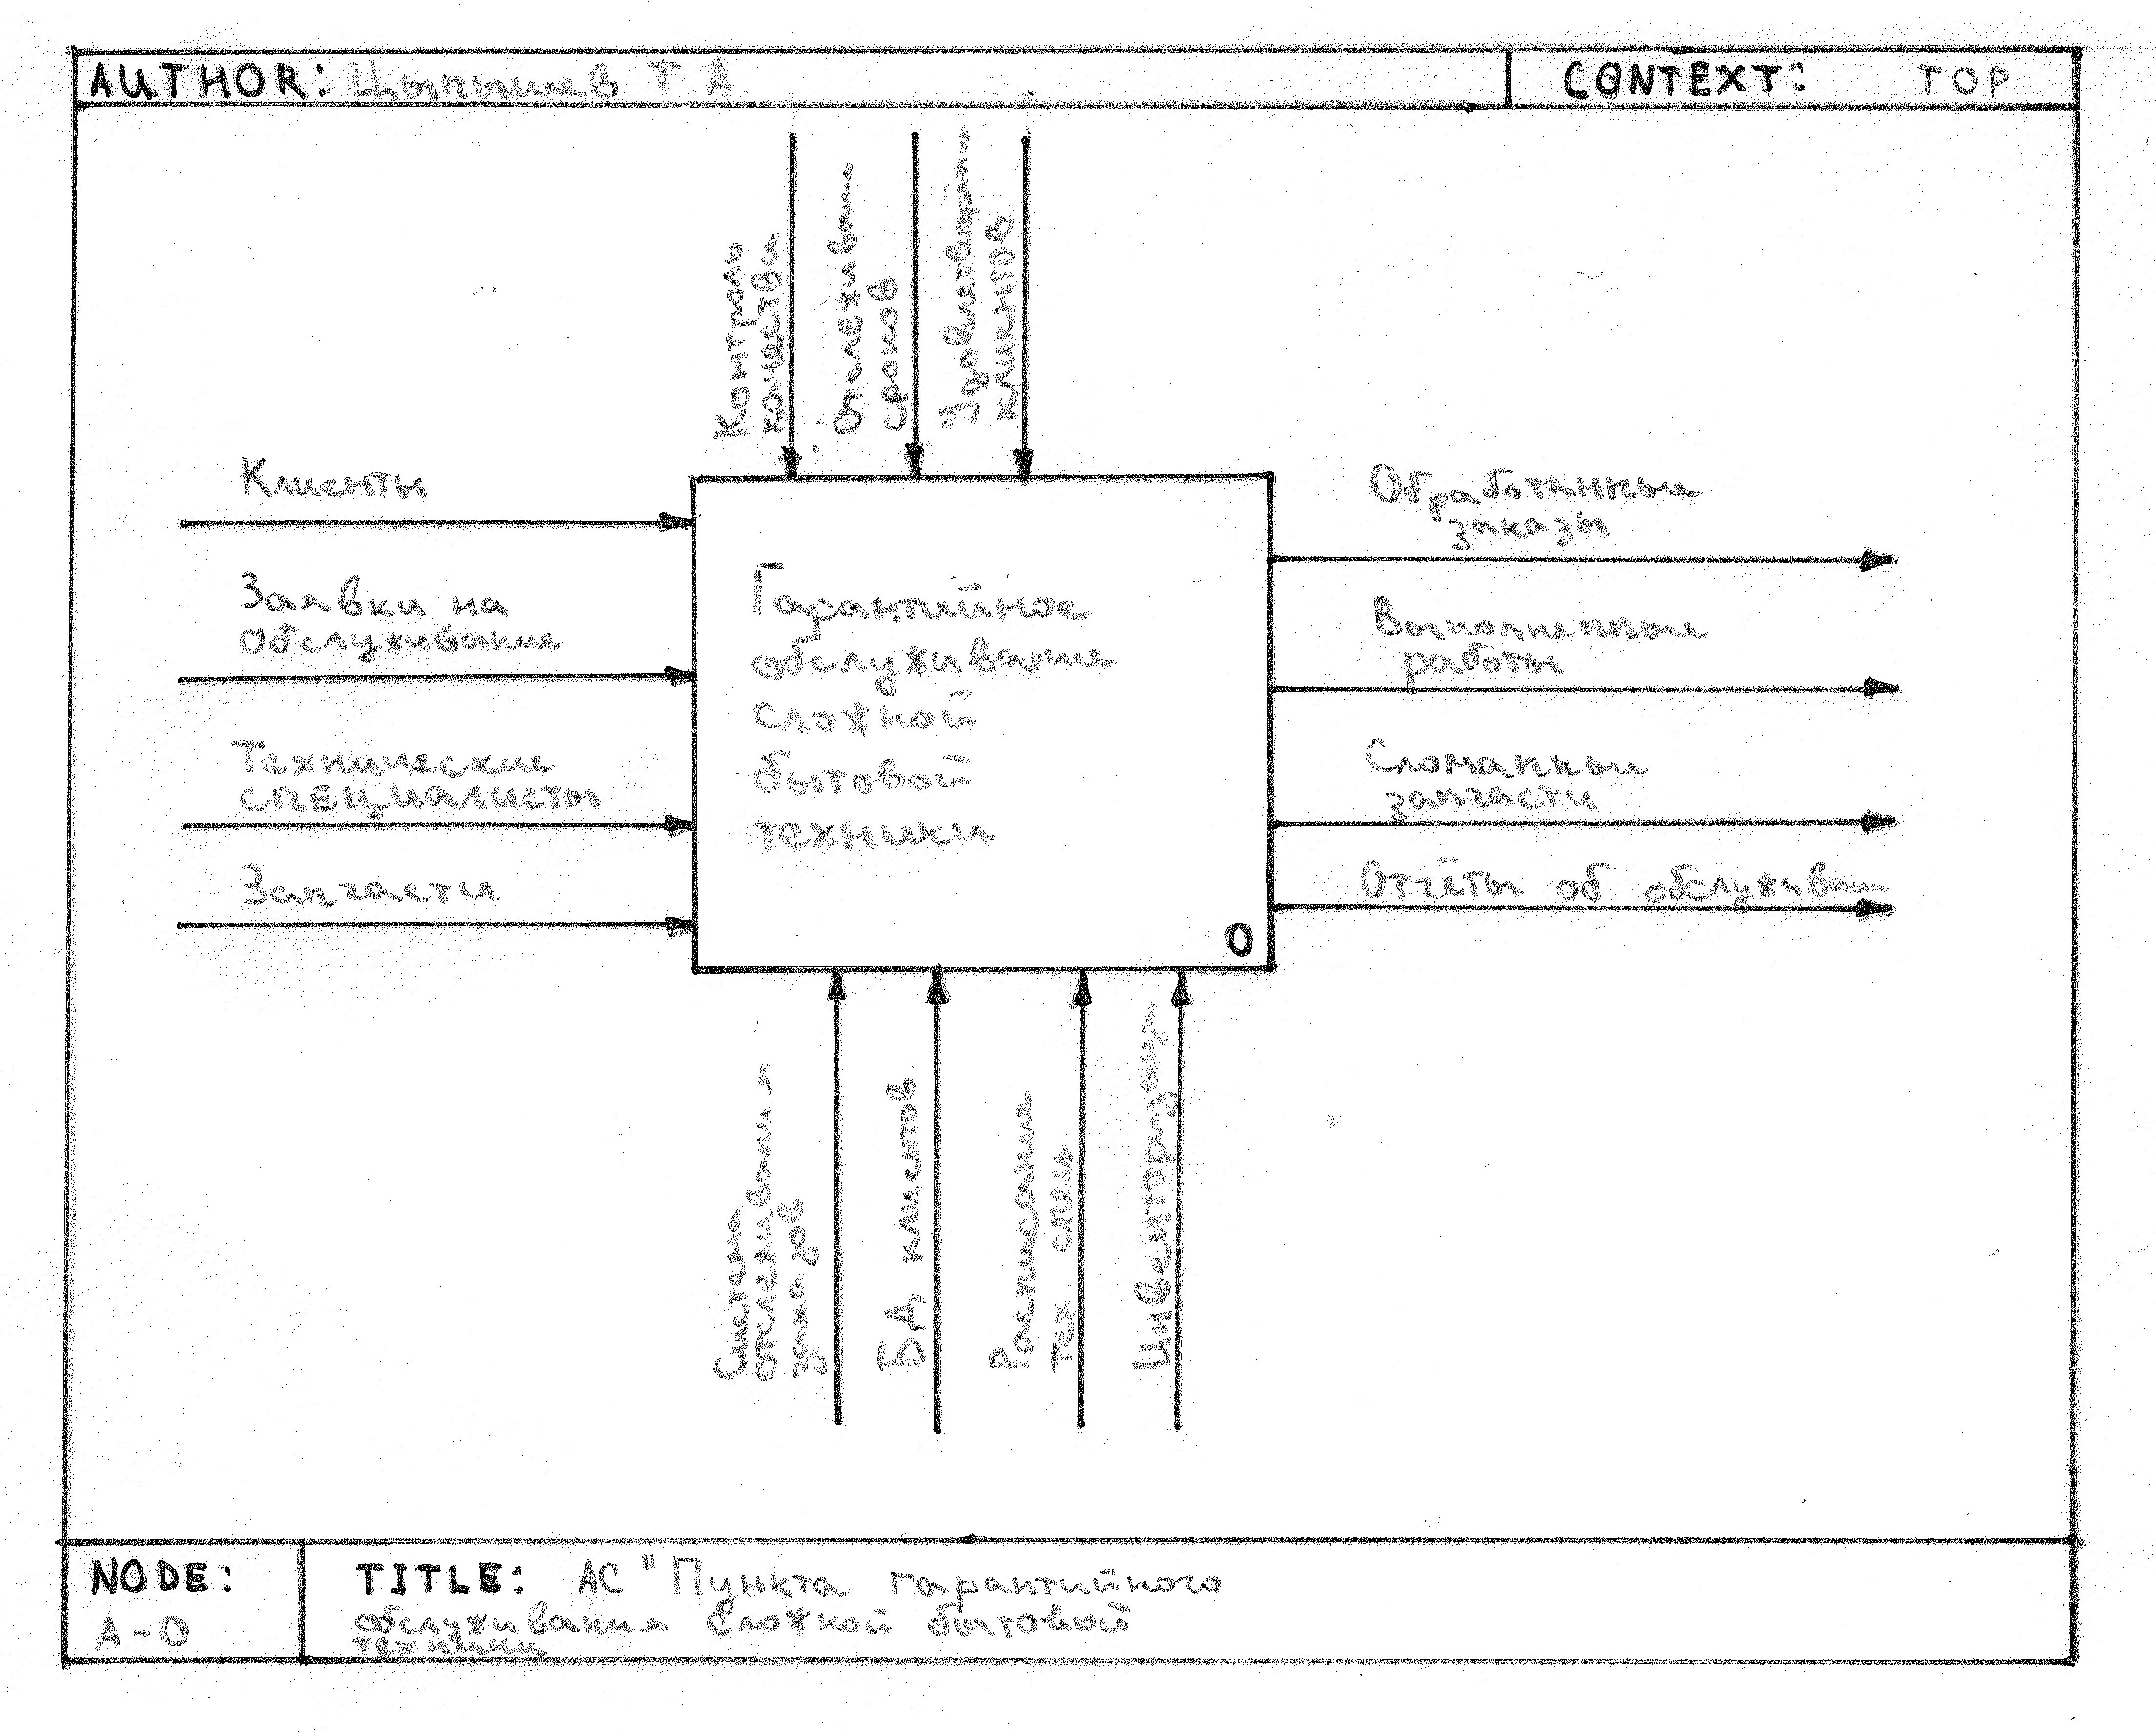 AUTHOR: Цыпышев Т А
CONTEXT: TOP
Контроль
качества
Отслеживание
сроков
Удовлетворение
клиентов
Клиенты
Заявки на
обслуживание
Технические
специалисты
Запчасти
Гарантийное
обслуживание
сложной
бытовой
техники
0
Обработанные
заказы
Выполненные
работы
Сломанные
запчасти
Отчёты об обслуживании
Система
отслеживания
заказов
БД клиентов
Расписание
тех. спец.
Инвентаризация
NODE:
A-0
TITLE: АС "Пункта гарантийного
обслуживания сложной бытовой
техники